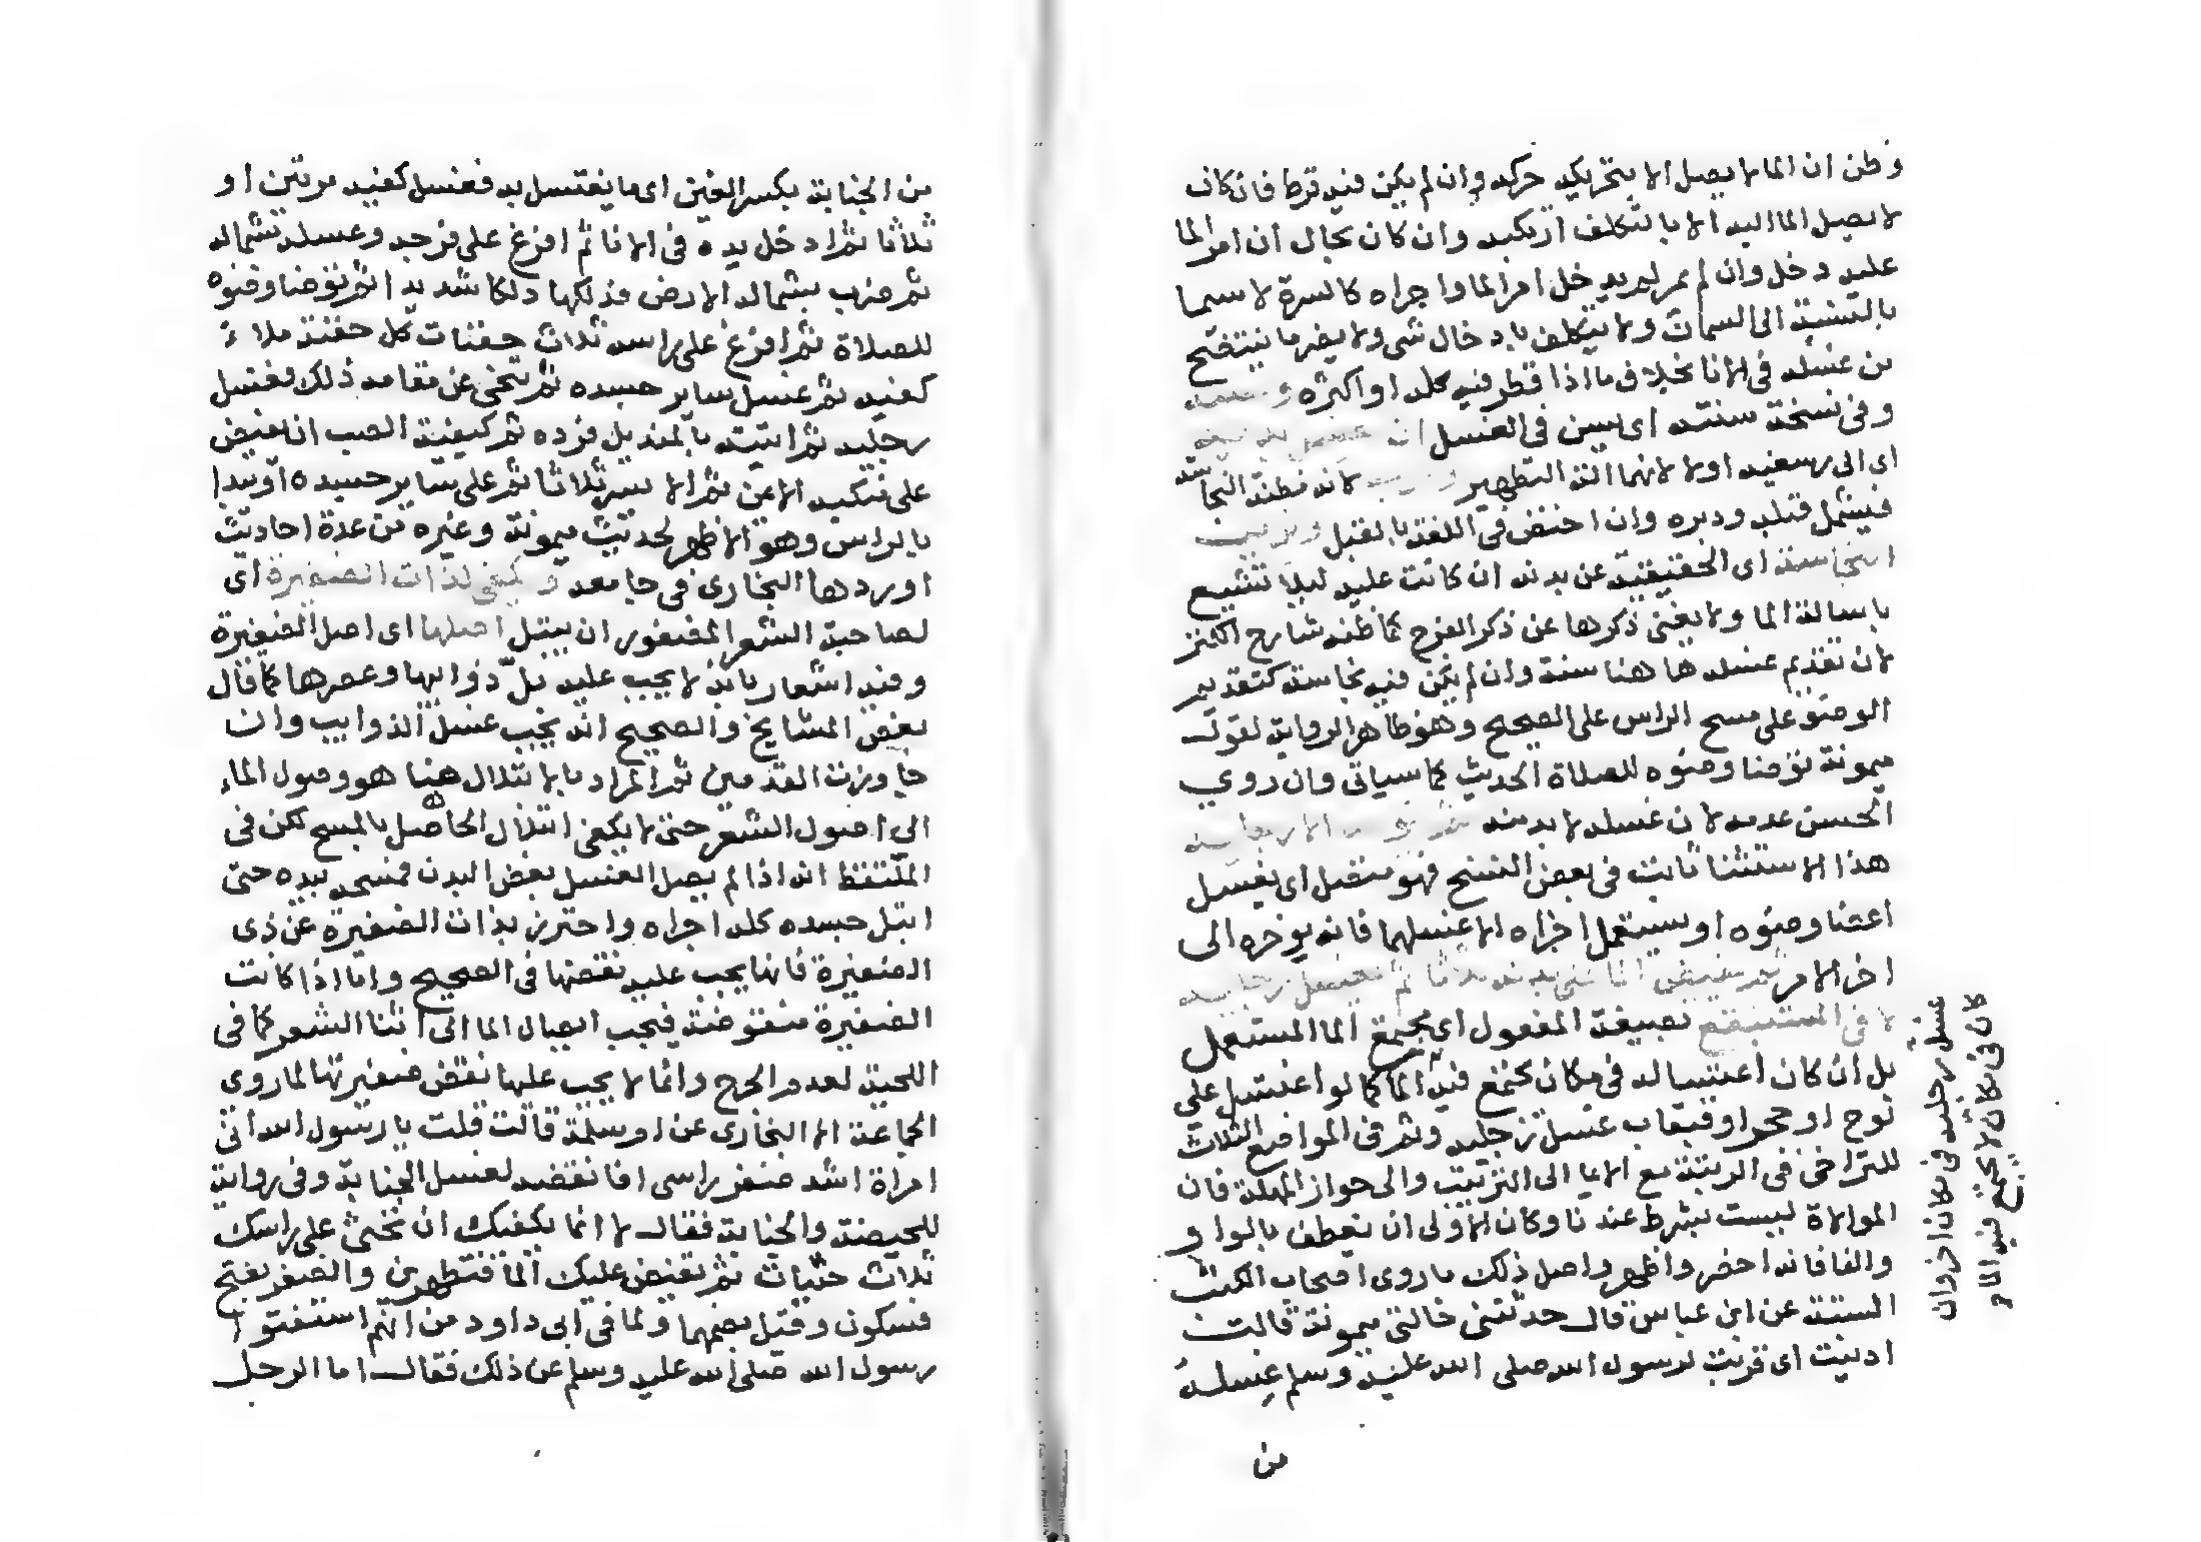 وظن ان الما لا يصل الا بتحريكه حركه وان لم يكن فيه قرط فان كان
لا يصل الما اليه الا بالتكلف از يكبه وان كان بحال ان امر الما
عليه دخل وان لم يمر لم يدخل امر الما واجراه كالسرة لا سيما
بالنسبة الى السمان ولا يتكلف بادخال شي ولا يضر ما ينتضح
من غسله في الانا بخلاف ما اذا قطر فيه كله او اكثره
وفي نسخة سنته اي يسن في الغسل ان يديه
اي الى رسغيه اولا لانهما الة التطهير لانه مظنة النجاسة
فيشمل قبله ودبره وان اختص في اللغة بالقبل
النجاسة اي الحقيقية عن بدنه ان كانت عليه ليلا تشيع
باسالة الما ولا يغني ذكرها عن ذكر الفرج كما ظنه شارح الكنز
لان تقديم غسله هاهنا سنة وان لم يكن فيه نجاسة كتقديم
الوضو على مسح الراس على الصحيح وهو ظاهر الرواية لقول
ميمونة توضا وضوه للصلاة الحديث كما سياتي وان روي
الحسن عدمه لان غسله لا بد منه الا رجليه
هذا الاستثنا ثابت في بعض النسخ فهو متصل اي يغسل
اعضا وضوه او يستعمل اجزاه الا غسلهما فانه يوخره الى
اخر الامر ثم يفيض الما على بدنه ثلاثا ثم يغسل رجليه
لا في المستنقع بصيغة المفعول اي مجمع الما المستعمل
بل ان كان اغتساله في مكان مجتمع فيه الما كما لو اغتسل على
لوح او حجر او قبقاب غسل رجليه وثم في المواضع الثلاث
للتراخي في الرتبة مع الايما الى الترتيب والى جواز المهلة فان
الموالاة ليست بشرط عندنا وكان الاولى ان يعطف بالواو
والفا فانه اخصر واظهر واصل ذلك ما روى اصحاب الكتب
الستة عن ابن عباس قال حدثتني خالتي ميمونة قالت
ادنيت اي قربت لرسول الله صلى الله عليه وسلم غسله
من
غسل رجليه في مكان اخر وان
كان في مكان لا يجتمع فيه الما
من الجنابة بكسر الغين اي ما يغتسل به فغسل كفيه مرتين او
ثلاثا ثم ادخل يده في الانا ثم افرغ على فرجه وغسله بشماله
ثم ضرب بشماله الارض فدلكها دلكا شديدا ثم توضا وضوه
للصلاة ثم افرغ على راسه ثلاث حفنات كل حفنة ملاء
كفيه ثم غسل ساير جسده ثم تنحى عن مقامه ذلك فغسل
رجليه ثم اتيته بالمنديل فرده ثم كيفية الصب ان يفيض
على منكبه الايمن ثم الايسر ثلاثا ثم على ساير جسده او يبدا
بالراس وهو الاظهر لحديث ميمونة وغيره من عدة احاديث
اوردها البخاري في جامعه ويكفي لذات الضفيرة اي
لصاحبة الشعر المضفور ان يبتل اصلها اي اصل الضفيرة
وفيه اشعار بانه لا يجب عليه بلّ ذوايبها وعصرها كما قال
بعض المشايخ والصحيح انه يجب غسل الذوايب وان
جاوزت القدمين ثم المراد بالابتلال هنا هو وصول الماء
الى اصول الشعر حتى لا يكفي ابتلال الحاصل بالمسح لكن في
الملتقط انه اذا لم يصل الغسل بعض البدن فمسحه بيده حتى
ابتل جسده كله اجزاه واحترز بذات الضفيرة عن ذي
الضفيرة فانه يجب عليه نقضها في الصحيح واما اذا كانت
الضفيرة منقوضة فيجب ايصال الما الى اثنا الشعر كما في
اللحية لعدم الحرج وانما لا يجب عليها نقض ضفيرتها لما روى
الجماعة الا البخاري عن ام سلمة قالت قلت يا رسول الله اني
امراة اشد ضفر راسي افانقضه لغسل الجنابة وفي رواية
للحيضة والجنابة فقال لا انما يكفيك ان تحثي على راسك
ثلاث حثيات ثم تفيض عليك الما فتطهرين والضفر بفتح
فسكون وقيل بضمهما ولما في ابي داود من انهم استفتوا
رسول الله صلى الله عليه وسلم عن ذلك فقال اما الرجل